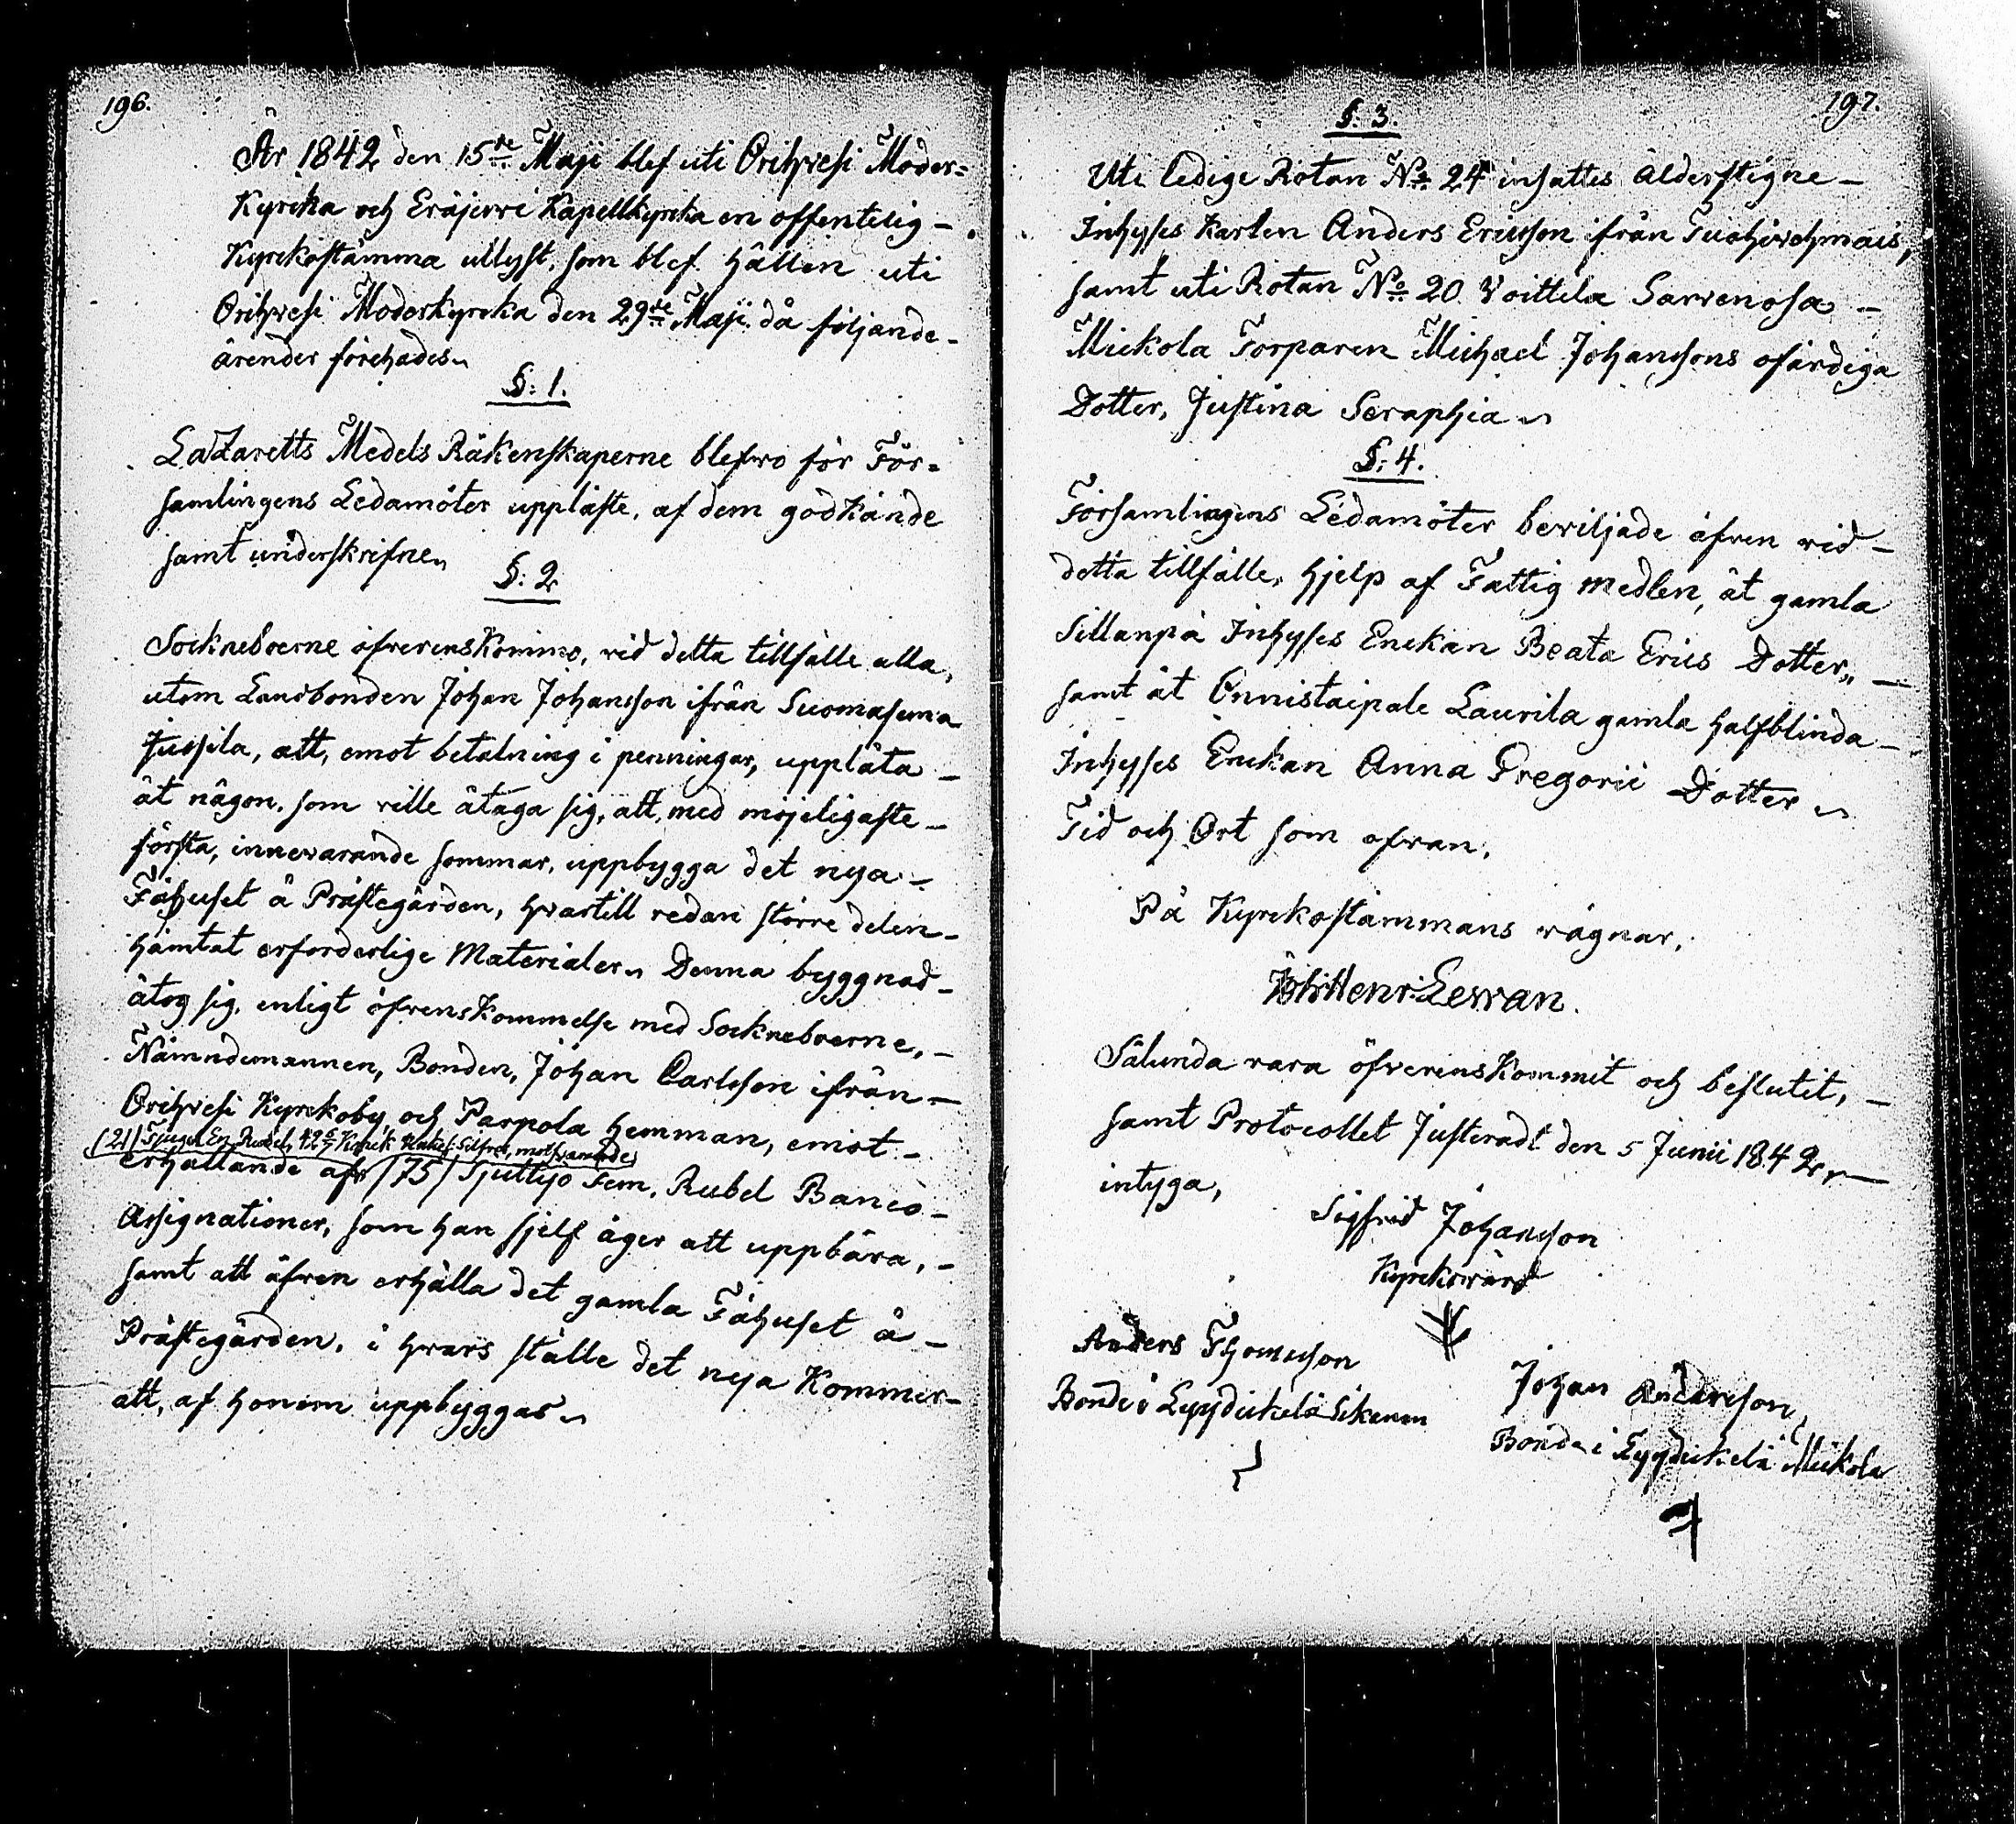 196.
År 1842 den 15de Maji blef uti Orihvesi Moder=
Kyrcka och Eräjervi Kapellkyrcka en offentelig -
Kyrckostämma utlyst, som blef hållen uti
Orihvesi Moderkyrcka den 29de Maji. då följande -
ärender förehades.
§: 1.
Lazaretts Medels Räkenskaperne blefvo för För=
samlingens Ledamöter uppläste, af dem godkände
samt underskrifne.
§: 2
Sockneboerne öfverenskommo, vid detta tillfälle alla,
utom Landbonden Johan Johansson ifrån Suomasema
Jussila, att, emot betalning i penningar, upplåta -
åt någon, som ville åtaga sig, att, med möjeligaste -
första, innevarande sommar, uppbygga det nya -
Fähuset å Prästegården, hvartill redan större delen -
hämtat erforderlige Materialer. Denna byggnad -
åtog sig, enligt öfvenskommelse med Sockneboerne, -
Nämndemannen, Bonden, Johan Carlsson ifrån -
Orihvesi Kyrckoby och Parpola hemman, emot -
/21/ Tjugu En Rubel, 42 6/7 Kopek Silfver, motsvarande
erhållande af /75/ Sjuttijo Fem, Rubel Banco -
Assignationer, som han sjelf äger att uppbära, -
samt att äfven erhålla det gamla Fähuset å -
Prästegården, i hvars ställe det nya Kommer -
att, af honom uppbyggas.
197.
§: 3.
Uti ledige Rotan No 24 insattes ålderstigne -
Inhyses Karlen Anders Ericsson ifrån
samt uti Rotan No 20 Voittila Sarvenosa -
Mickola Torparen Michael Johanssons ofärdiga
Dotter, Justina Seraphia
§: 4.
Församlingens Ledamöter beviljade äfven vid -
detta tillfälle, hjelp af Fattig medlen, åt gamla
Sillanpä Inhyses Enckan Beata Erics Dotter, -
samt åt Onnistaipale Laurila gamla halfblinda -
Inhyses Enckan Anna Gregorii Dotter
Tid och Ort som ofvan.
På Kyrckostämmans vägnar,
Joh: Henr: Levvan.
Sålunda vara öfverenskommit och beslutit, -
samt Protocollet Justeradt den 5 Junii 1842, -
intyga,
Sigfrid Johansson
Kyrckovärd
Anders Thomasson
Bonde i Eyydickelä
Johan Andersson,
Bonde i Eyydickelä Mickola